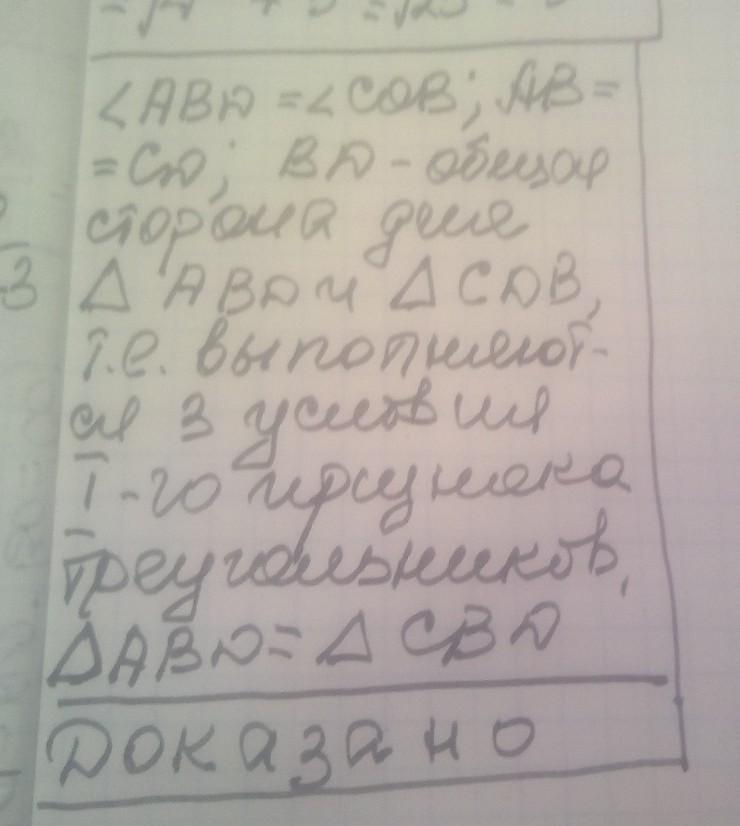 ∠ABD = ∠CDB; AB =
= CD; BD - общая
сторона для
Δ ABD и Δ CDB,
т.е. выполняют-
ся 3 условия
I-го признака
треугольников,
ΔABD = Δ CBD
Доказано